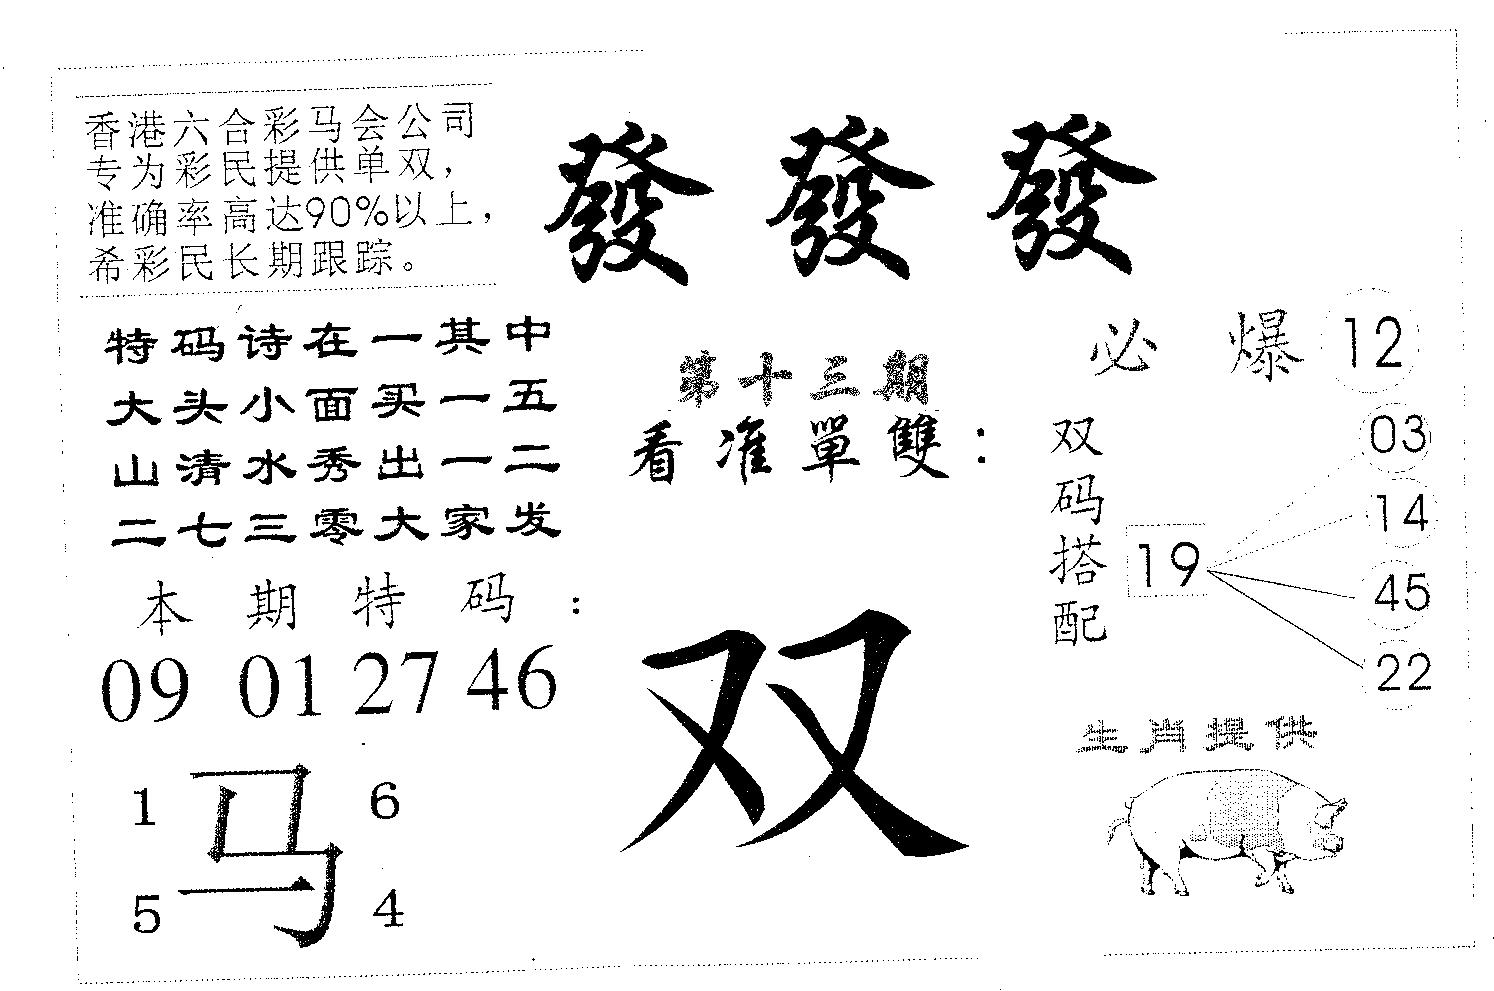 香港六合彩马会公司
专为彩民提供单双，
准确率高达90%以上，
希彩民长期跟踪。
發發發
特码诗在一其中
大头小面买一五
山清水秀出一二
二七三零大家发
第十三期
看准單雙：
双
必爆12
双码搭配
19
03
14
45
22
本期特码：
09 01 27 46
马
1
6
5
4
生肖提供